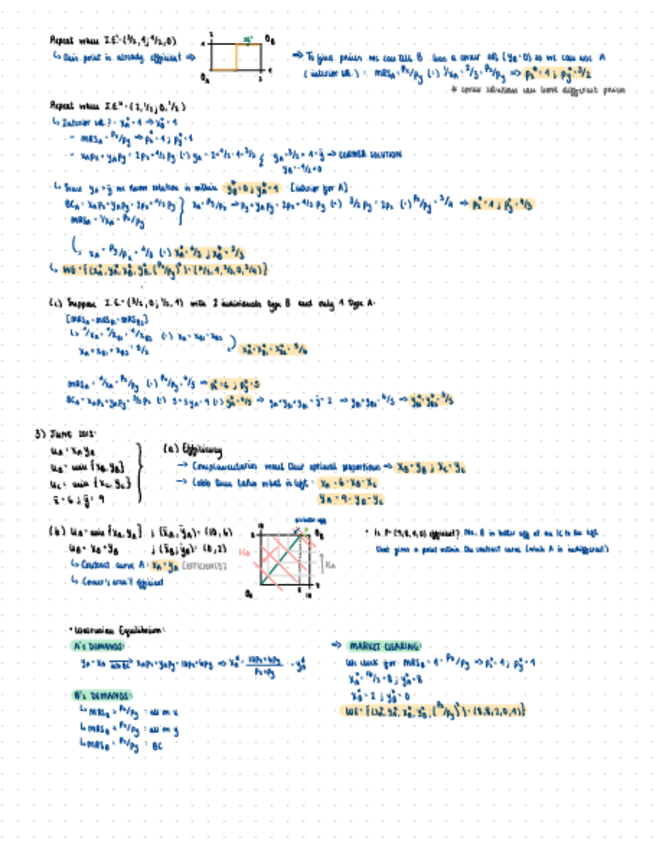 Repeat when I.E'=(3/2, 1; 1/2, 0)
↳ this point is already efficient ⇒
⇒ To give prices we can tell B has a corner sol (yB=0) so we can use A
(interior sol.) = MRSA = Px/Py (·) 1/xA = 2/3 = Px/Py ⇒ px*=1; py*=3/2
* corner solutions can have different prices
Repeat when I.E''=(2, 1/2; 0, 1/2)
↳ Interior sol? = xA*=1 ⇒ xB*=1
- MRSA = Px/Py ⇒ px*=1; py*=1
⇒ CORNER SOLUTION
↳ Since yA>ȳ we know solution is within yB*=0; yA*=1 [interior for A]
BCA = xAPx+yAPy = 2Px+1/2Py
MRSA = 1/xA = Px/Py
xA=Py/Px ⇒ Py+yAPy=2Px+1/2Py (·) 3/2 Py=2Px (·) Px/Py = 3/4 ⇒ px*=1; py*=4/3
↳ xA = Py/Px = 4/3 (·) xA*=4/3; xB*=2/3
↳ WE={(xA*, yA*, xB*, yB*, (Px/Py)*)=(4/3, 1, 2/3, 0, 3/4)}
(c) Suppose I.E.=(3/2, 0; 1/2, 1) with 2 individuals type B and only 1 type A.
[MRSA=MRSB1=MRSB2]
↳ 1/xA=1/xB1=1/xB2 (·) xA=xB1=xB2
xA+xB1+xB2=5/2
xA*=xB1*=xB2*=5/6
MRSA = 1/xA = Px/Py (·) Px/Py = 6/5 ⇒ px*=6; py*=5
3) June 2012:
uA=xAyA
uB=min{xB,yB}
uC=min{xC,yC}
x̄=6; ȳ=9
(a) Efficiency
→ Complementarities meet their optimal proportions ⇒ xB=yB; xC=yC
→ Cobb Doug takes what is left = xA=6-xB-xC
yA=9-yB-yC
(b) uA=min{xA,yA} ; (x̄A,ȳA)=(10,6)
uB=xB+yB ; (x̄B,ȳB)=(0,2)
↳ Contract curve A: xA=yA [EFFICIENCY]
↳ Corners aren't efficient
* Is P=(9,8,1,0) efficient? No. B is better off at the IC to the left
that gives a point within the contract curve (while A is indifferent)
• Walrasian Equilibrium:
A's DEMANDS:
yA=xA into BC xAPx+yAPy=10Px+6Py ⇒ xA* = 10Px+6Py / Px+Py = yA*
B's DEMANDS:
↳ MRSB > Px/Py = all in x
↳ MRSB < Px/Py = all in y
↳ MRSB = Px/Py = BC
⇒ MARKET CLEARING:
We look for MRSB=1=Px/Py ⇒ px*=1; py*=1
xA*=16/2=8; yA*=8
xB*=2; yB*=0
WE={(xA*, yA*, xB*, yB*, (Px/Py)*)=(8,8,2,0,1)}